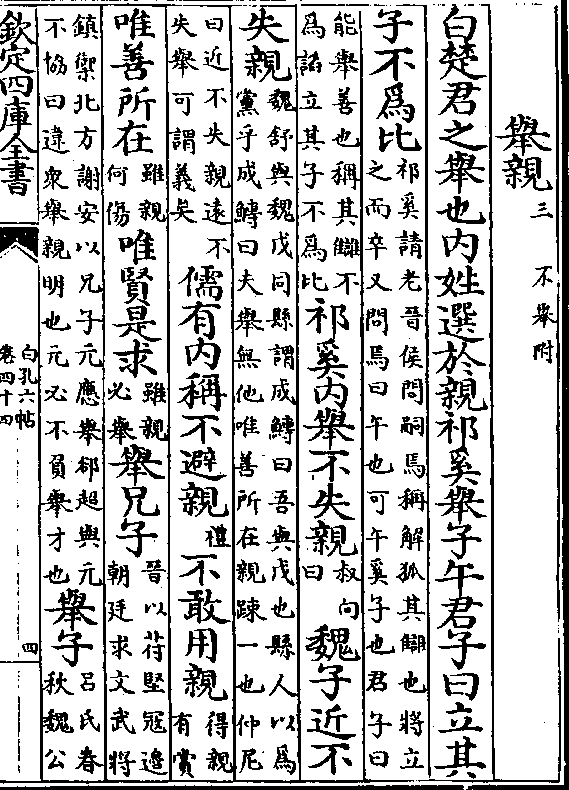 舉親三 不舉附
白楚君之舉也内姓選於親祁奚舉子午君子曰立其
子不為比祁奚請老晉侯問嗣焉稱解狐其讎也將立
之而卒又問焉曰午也可午奚子也君子曰
能舉善也稱其讎不
為謟立其子不為比祁奚内舉不失親叔向
曰魏子近不
失親魏舒與魏戊同縣謂成鱄曰吾與戊也縣人以為
黨乎成鱄曰夫舉無他唯善所在親踈一也仲尼
曰近不失親遠不
失舉可謂義矣儒有内稱不避親禮不敢用親得親
有賞
唯善所在雖親
何傷唯賢是求雖親
必舉舉兄子晉以苻堅冦邉
朝廷求文武將
鎮禦北方謝安以兄子元應舉郄超與元
不協曰違衆舉親明也元必不負舉才也舉子吕氏春
秋魏公
欽定四庫全書
白孔六帖
卷四十四
四